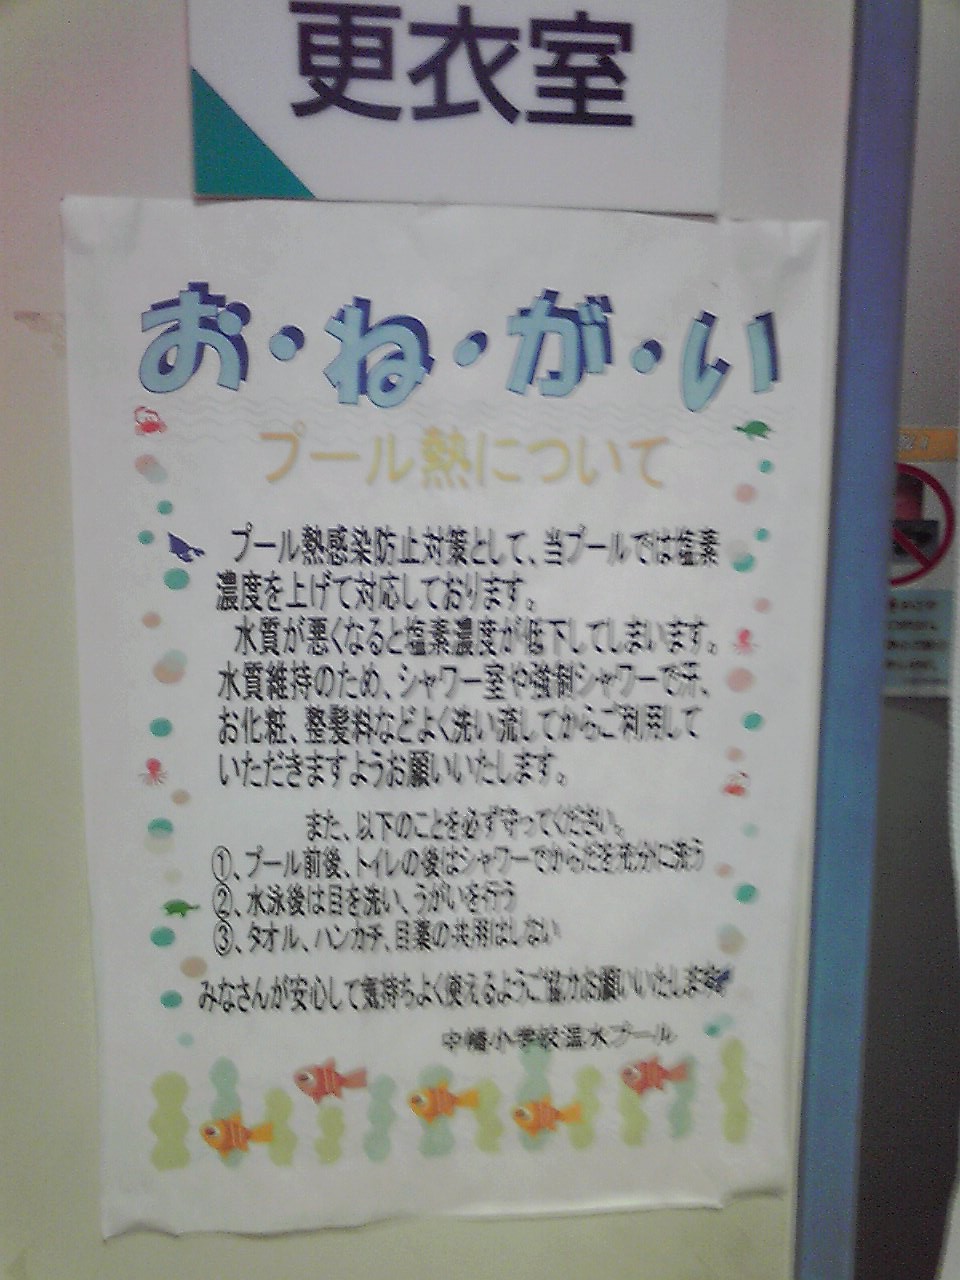 更衣室
お・ね・が・い
プール熱について
プール熱感染防止対策として、当プールでは塩素
濃度を上げて対応しております。
水質が悪くなると塩素濃度が低下してしまいます。
水質維持のため、シャワー室や強制シャワーで汗、
お化粧、整髪料などよく洗い流してからご利用して
いただきますようお願いいたします。
また、以下のことを必ず守ってください。
①、プール前後、トイレの後はシャワーでからだを充分に洗う
②、水泳後は目を洗い、うがいを行う
③、タオル、ハンカチ、目薬の共用はしない
みなさんが安心して気持ちよく使えるようご協力お願いいたします。
中幡小学校温水プール